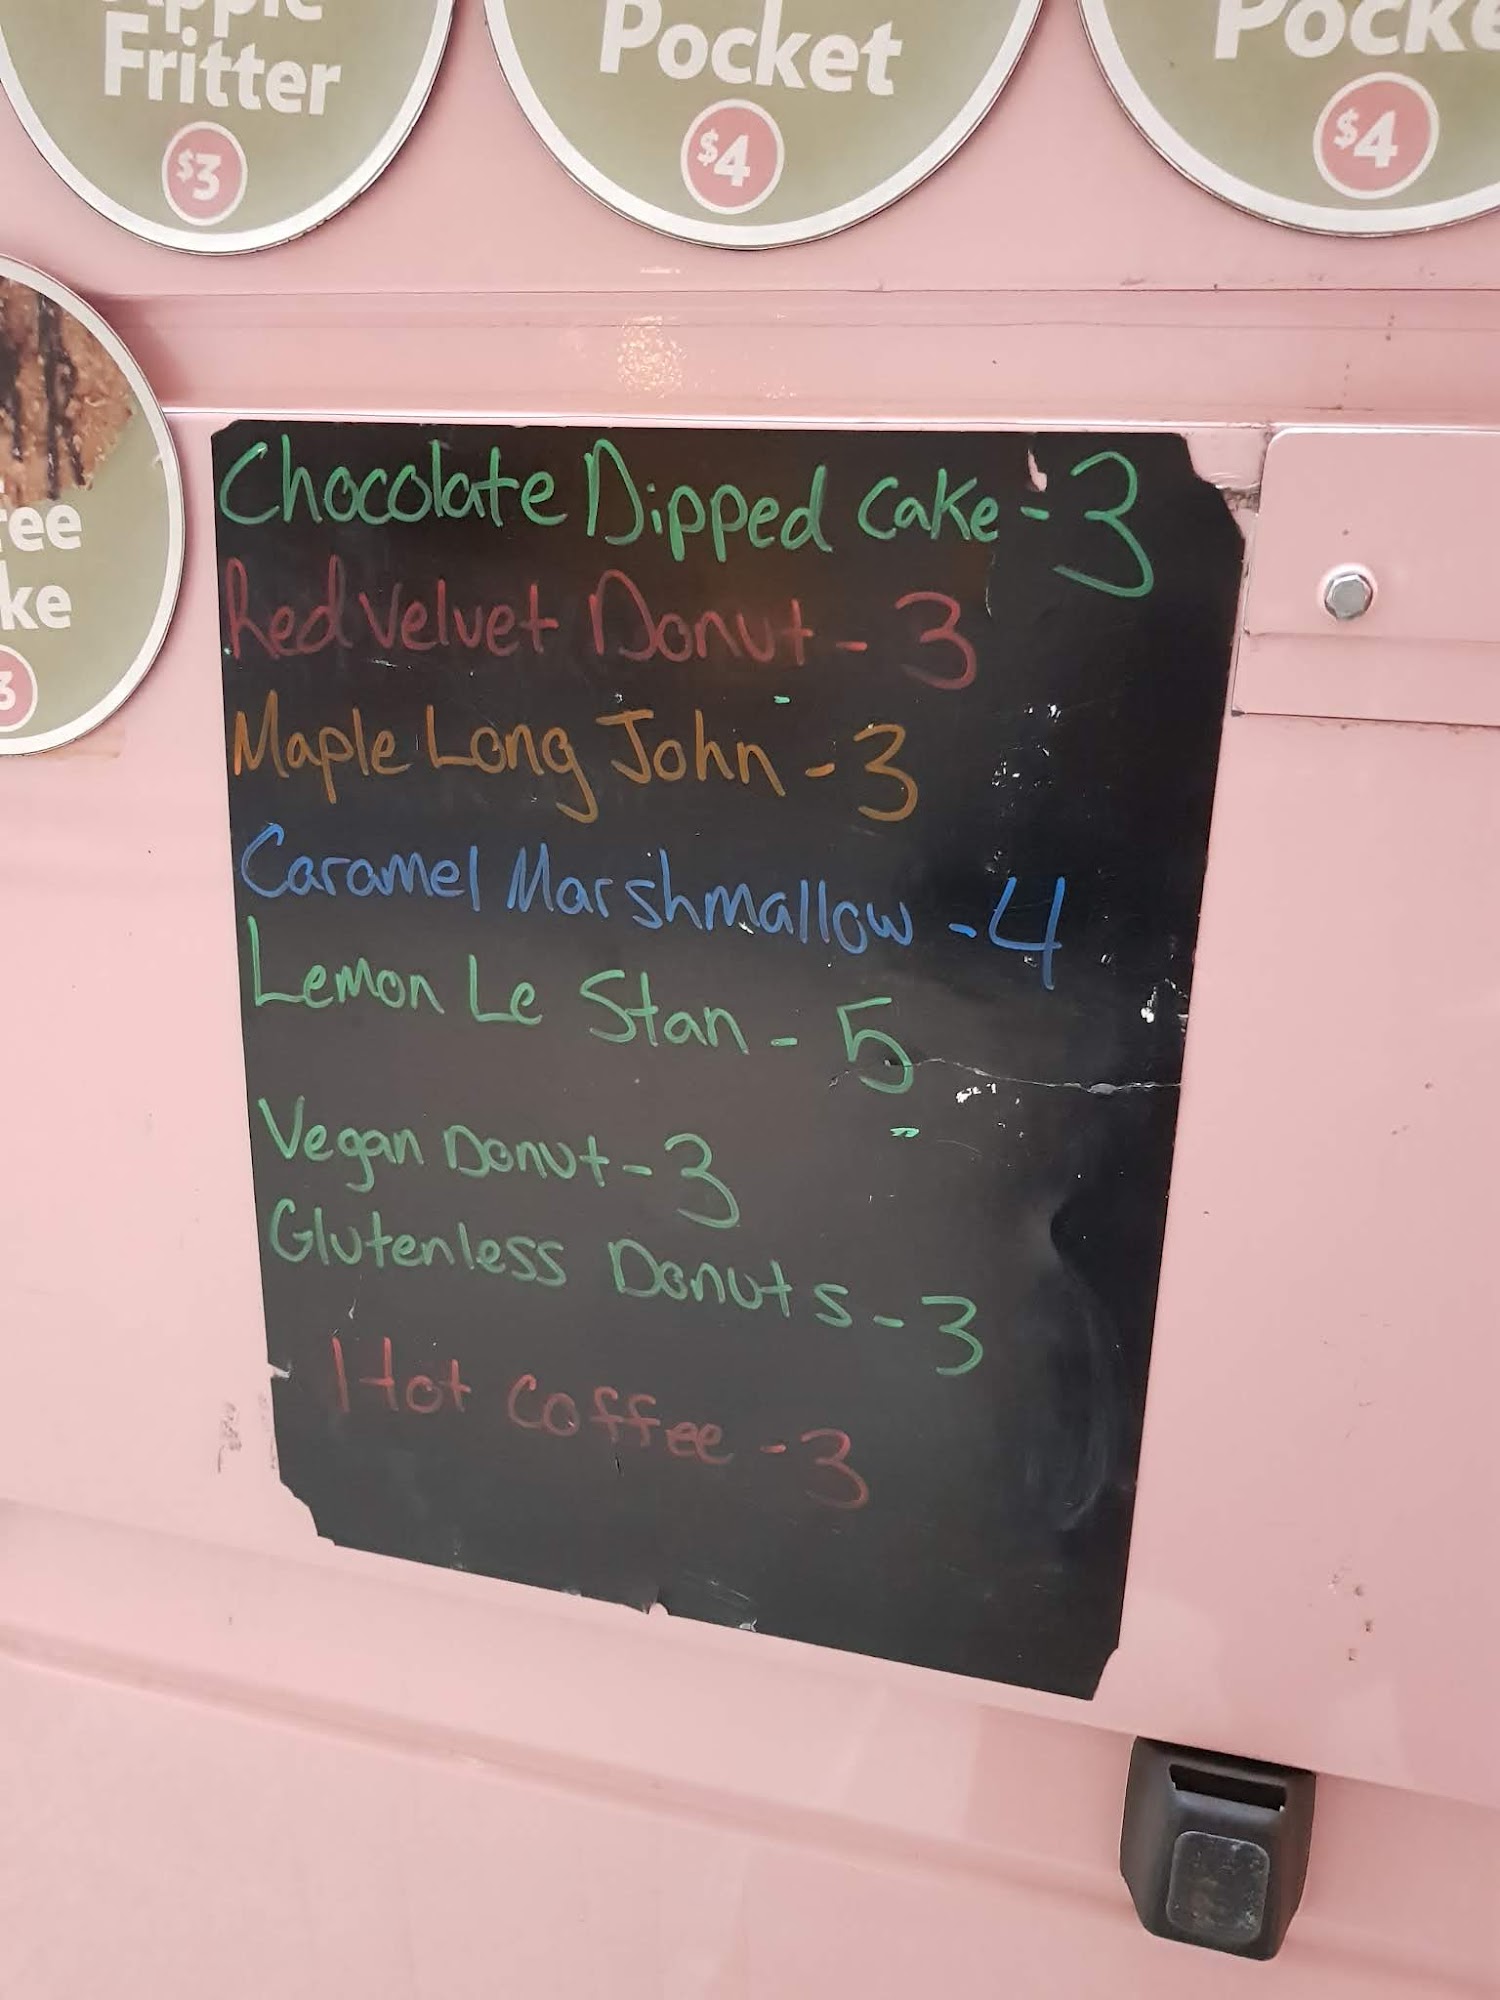 Fritter
$3
Pocket
$4
$4
Chocolate Dipped Cake - 3
Red Velvet Donut - 3
Maple Long John - 3
Caramel Marshmallow - 4
Lemon Le Stan - 5
Vegan Donut - 3
Glutenless Donuts - 3
Hot Coffee - 3